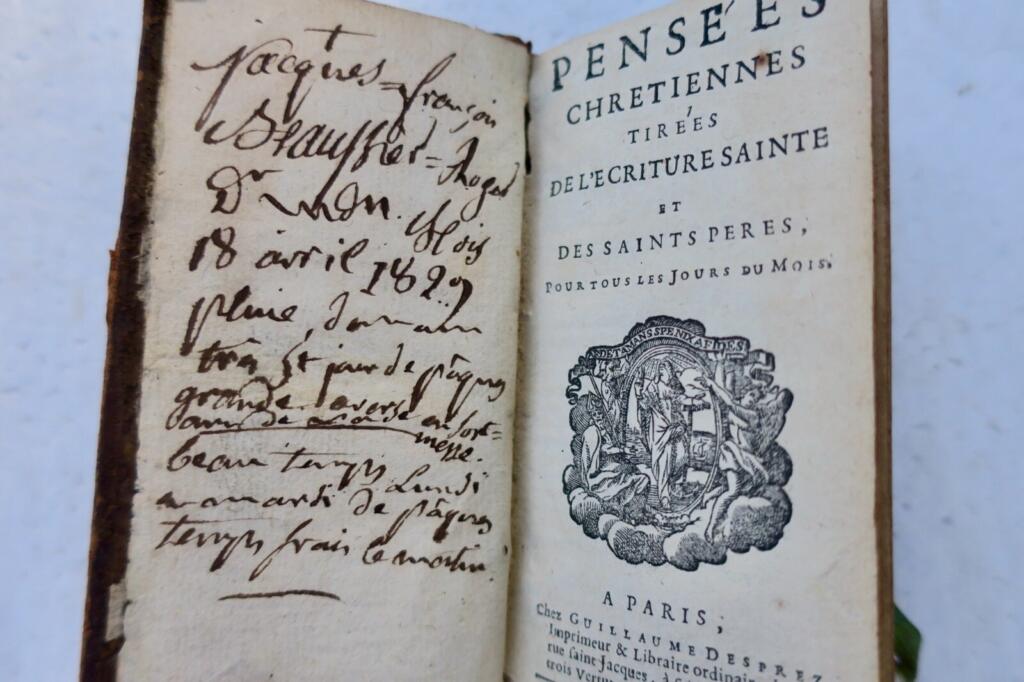 Jacques=françois
Beaussier=Roger
Dr
Blois
18 avril 1829
pluie,
St jour de pâques
grande averse
en sort-
messe.
beau temps Lundi
mardi de pâques
temps frais le matin.
PENSÉES
CHRETIENNES
TIRÉES
DE L'ECRITURE SAINTE
ET
DES SAINTS PERES,
POUR TOUS LES JOURS DU MOIS.
ARDET AMANS SPE NIXA FIDES
A PARIS,
Chez GUILLAUME DESPREZ
Imprimeur & Libraire ordinaire
rue saint Jacques, à
trois